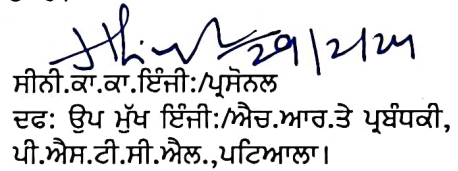 29/2/24
ਸੀਨੀ.ਕਾ.ਕਾ.ਇੰਜੀ:/ਪ੍ਰਸੋਨਲ
ਦਫ: ਉਪ ਮੁੱਖ ਇੰਜੀ:/ਐਚ.ਆਰ.ਤੇ ਪ੍ਰਬੰਧਕੀ,
ਪੀ.ਐਸ.ਟੀ.ਸੀ.ਐਲ.,ਪਟਿਆਲਾ।